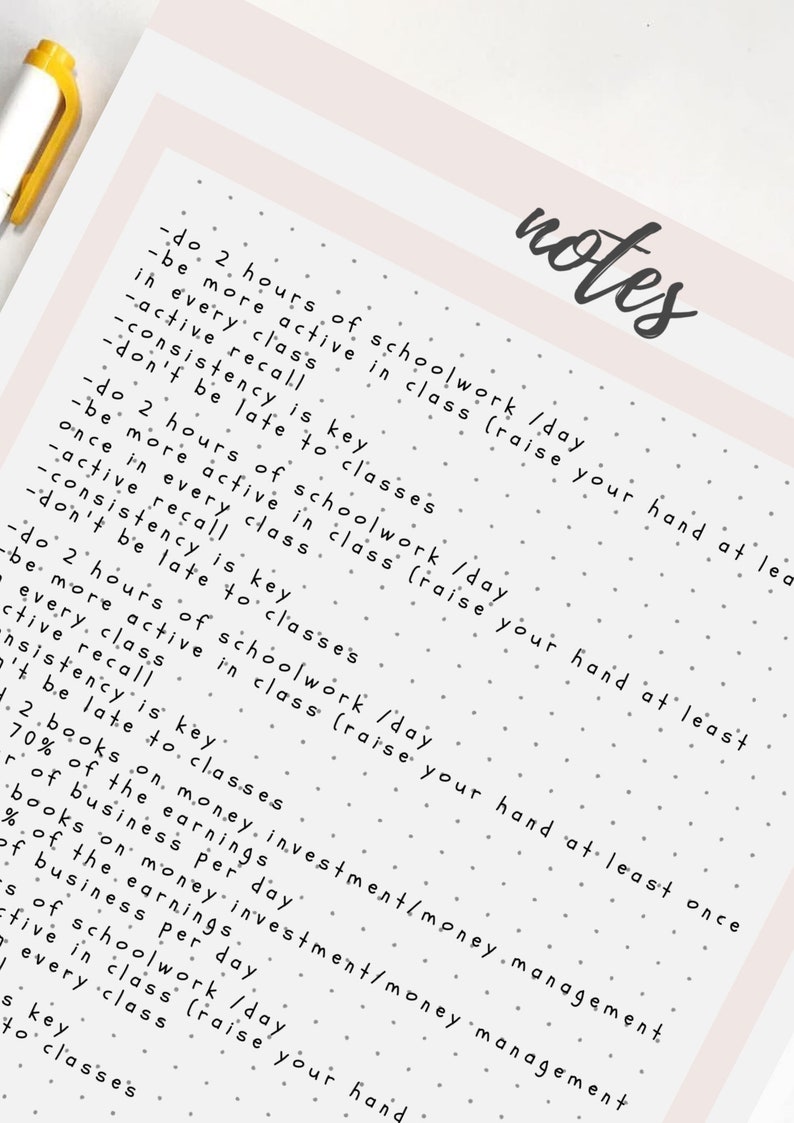 notes
-do 2 hours of schoolwork /day
-be more active in class (raise your hand at
in every class
-active recall
-consistency is key
-don't be late to classes
-do 2 hours of schoolwork /day
-be more active in class (raise your hand at least
once in every class
-active recall
-consistency is key
-don't be late to classes
-do 2 hours of schoolwork /day
-be more active in class (raise your hand at least once
every class
recall
is key
be late to classes
2 books on money investment/money management
70% of the earnings
of business per day
books on money investment/money management
% of the earnings
of business per day
of schoolwork /day
in class (raise your hand
every class
key
to classes